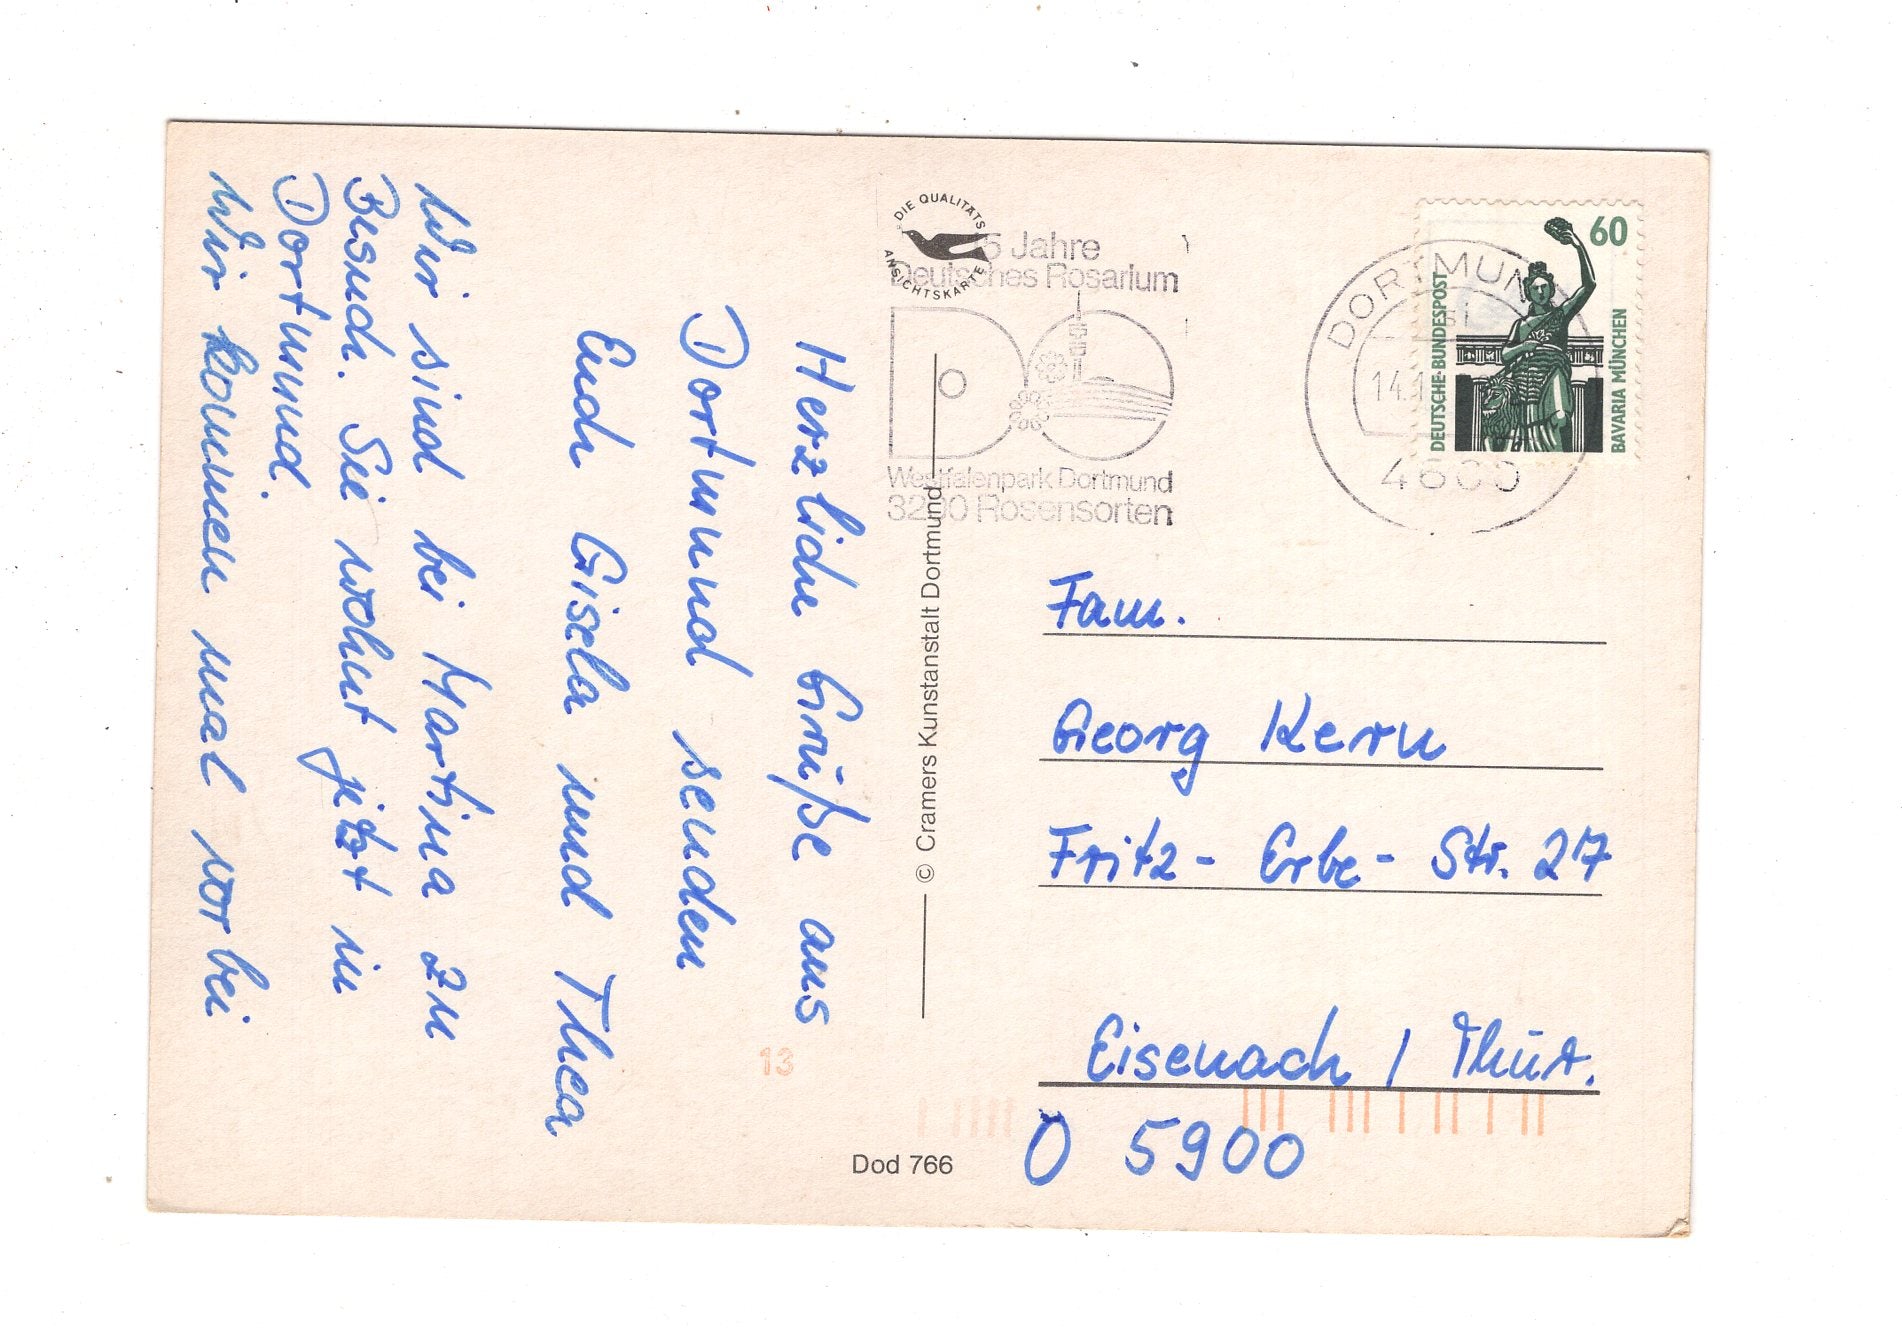 Herzliche Grüße aus
Dortmund senden
Euch Gisela und Thea
Wir sind bei Martina zu
Besuch. Sie wohnt jetzt in
Dortmund.
Wir kommen mal vorbei
DIE QUALITÄTS
ANSICHTSKARTE
5 Jahre
Deutsches Rosarium
DO
Westfalenpark Dortmund
3200 Rosensorten
© Cramers Kunstanstalt Dortmund
DORTMUN
14.1
4600
60
DEUTSCHE BUNDESPOST
BAVARIA MÜNCHEN
Fam.
Georg Kern
Fritz-Erbe-Str. 27
Eisenach / Thür.
O 5900
13
Dod 766